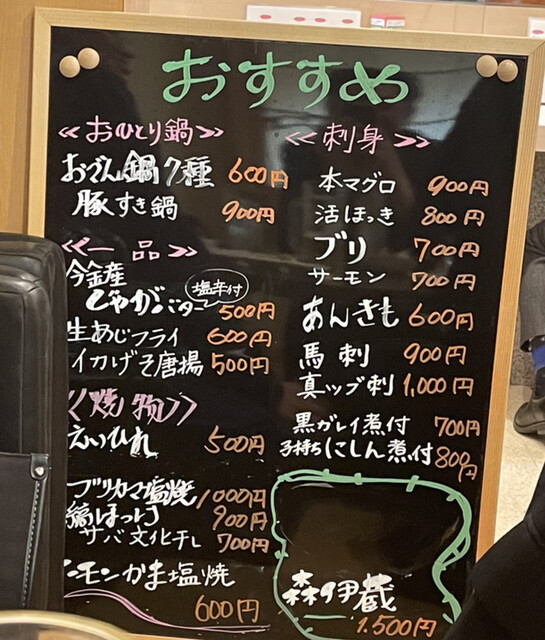 おすすめ
<<おひとり鍋>>
おでん鍋7種 600円
豚すき鍋 900円
<<一品>>
今金産
じゃがバター 塩辛付 500円
生あじフライ 600円
イカげそ唐揚 500円
<<焼物>>
えいひれ 500円
ブリカマ塩焼 1000円
縞ほっけ 900円
サバ文化干し 700円
ーモンかま塩焼
600円
<<刺身>>
本マグロ 900円
活ほっき 800円
ブリ 700円
サーモン 700円
あんきも 600円
馬刺 900円
真ツブ刺 1,000円
黒ガレイ煮付 700円
子持ちにしん煮付 800円
森伊蔵
1.500円